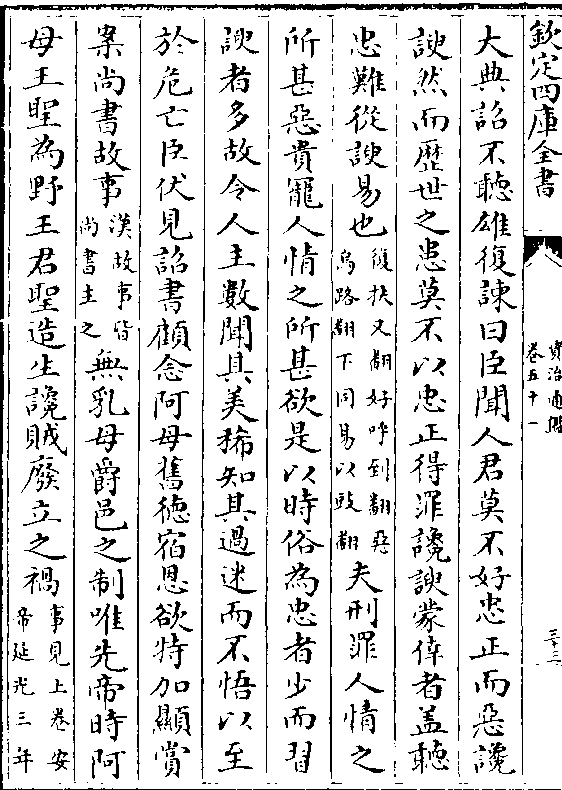 欽定四庫全書
資治通鑑
卷五十一
三十三
大典詔不聽雄復諫曰臣聞人君莫不好忠正而惡讒
諛然而歴世之患莫不以忠正得罪讒諛蒙倖者盖聽
忠難從諛易也復扶又翻好呼到翻惡
烏路翻下同易以豉翻夫刑罪人情之
所甚惡貴寵人情之所甚欲是以時俗為忠者少而習
諛者多故令人主數聞其美稀知其過迷而不悟以至
於危亡臣伏見詔書顧念阿母舊徳宿恩欲特加顯賞
案尚書故事漢故事皆
尚書主之無乳母爵邑之制唯先帝時阿
母王聖為野王君聖造生讒賊廢立之禍事見上卷安
帝延光三年